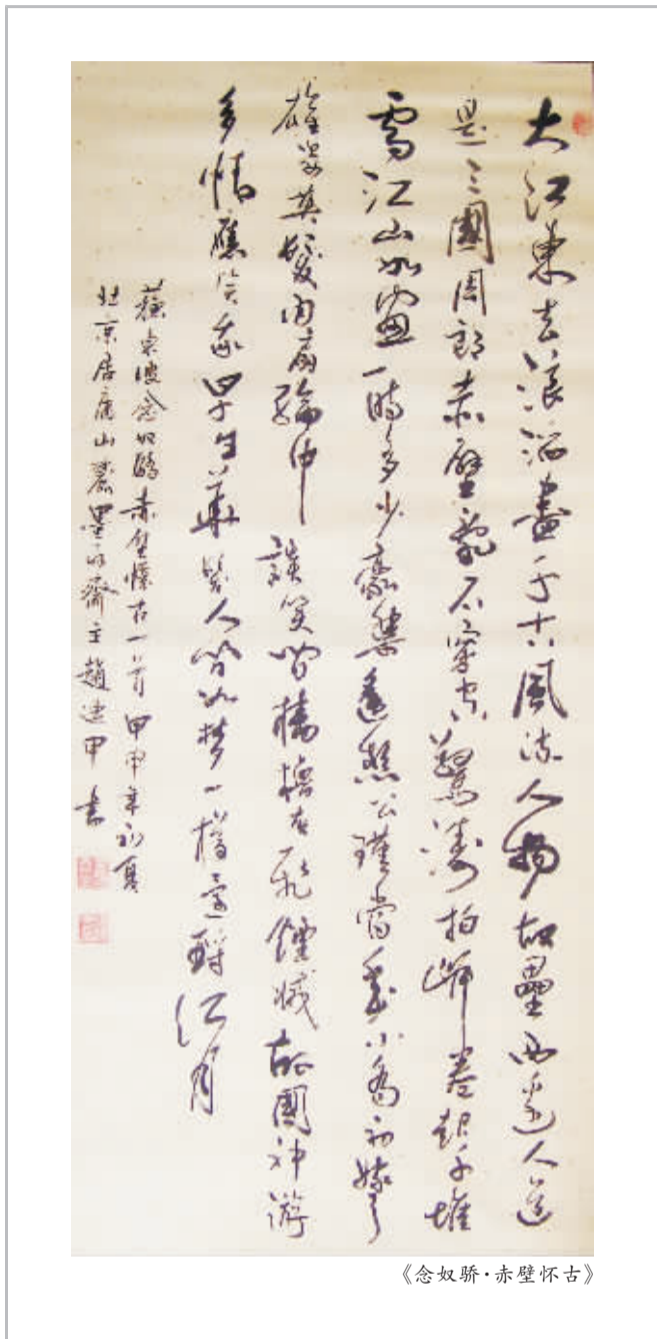 大江東去浪淘盡千古風流人物故壘西邊人道
是三國周郎赤壁亂石穿空驚濤拍岸卷起千堆
雪江山如畫一時多少豪傑遙想公瑾當年小喬初嫁了
雄姿英發羽扇綸巾談笑間檣櫓灰飛煙滅故國神游
多情應笑我早生華髮人间如梦一樽還酹江月
蘇東坡念奴嬌赤壁懷古一首 甲申年初夏
北京居庸山麓墨齋主趙建甲書
《念奴骄·赤壁怀古》